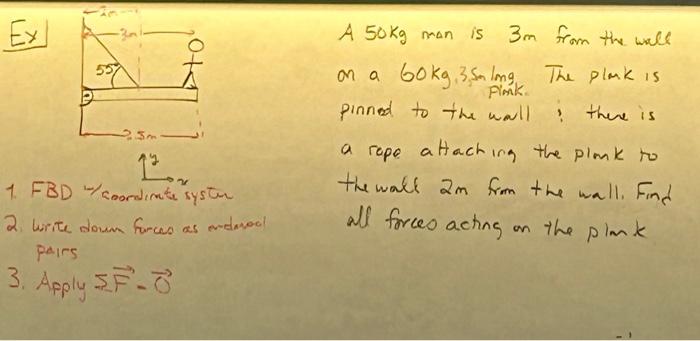 Ex
2m
3m
55°
3.5m
y
x
1. FBD w/coordinate system
2. Write down forces as ordered
pairs
3. Apply ΣF = 0
A 50kg man is 3m from the wall
on a 60kg, 3.5m long
Plank. The plank is
pinned to the wall & there is
a rope attaching the plank to
the wall 2m from the wall. Find
all forces acting on the plank